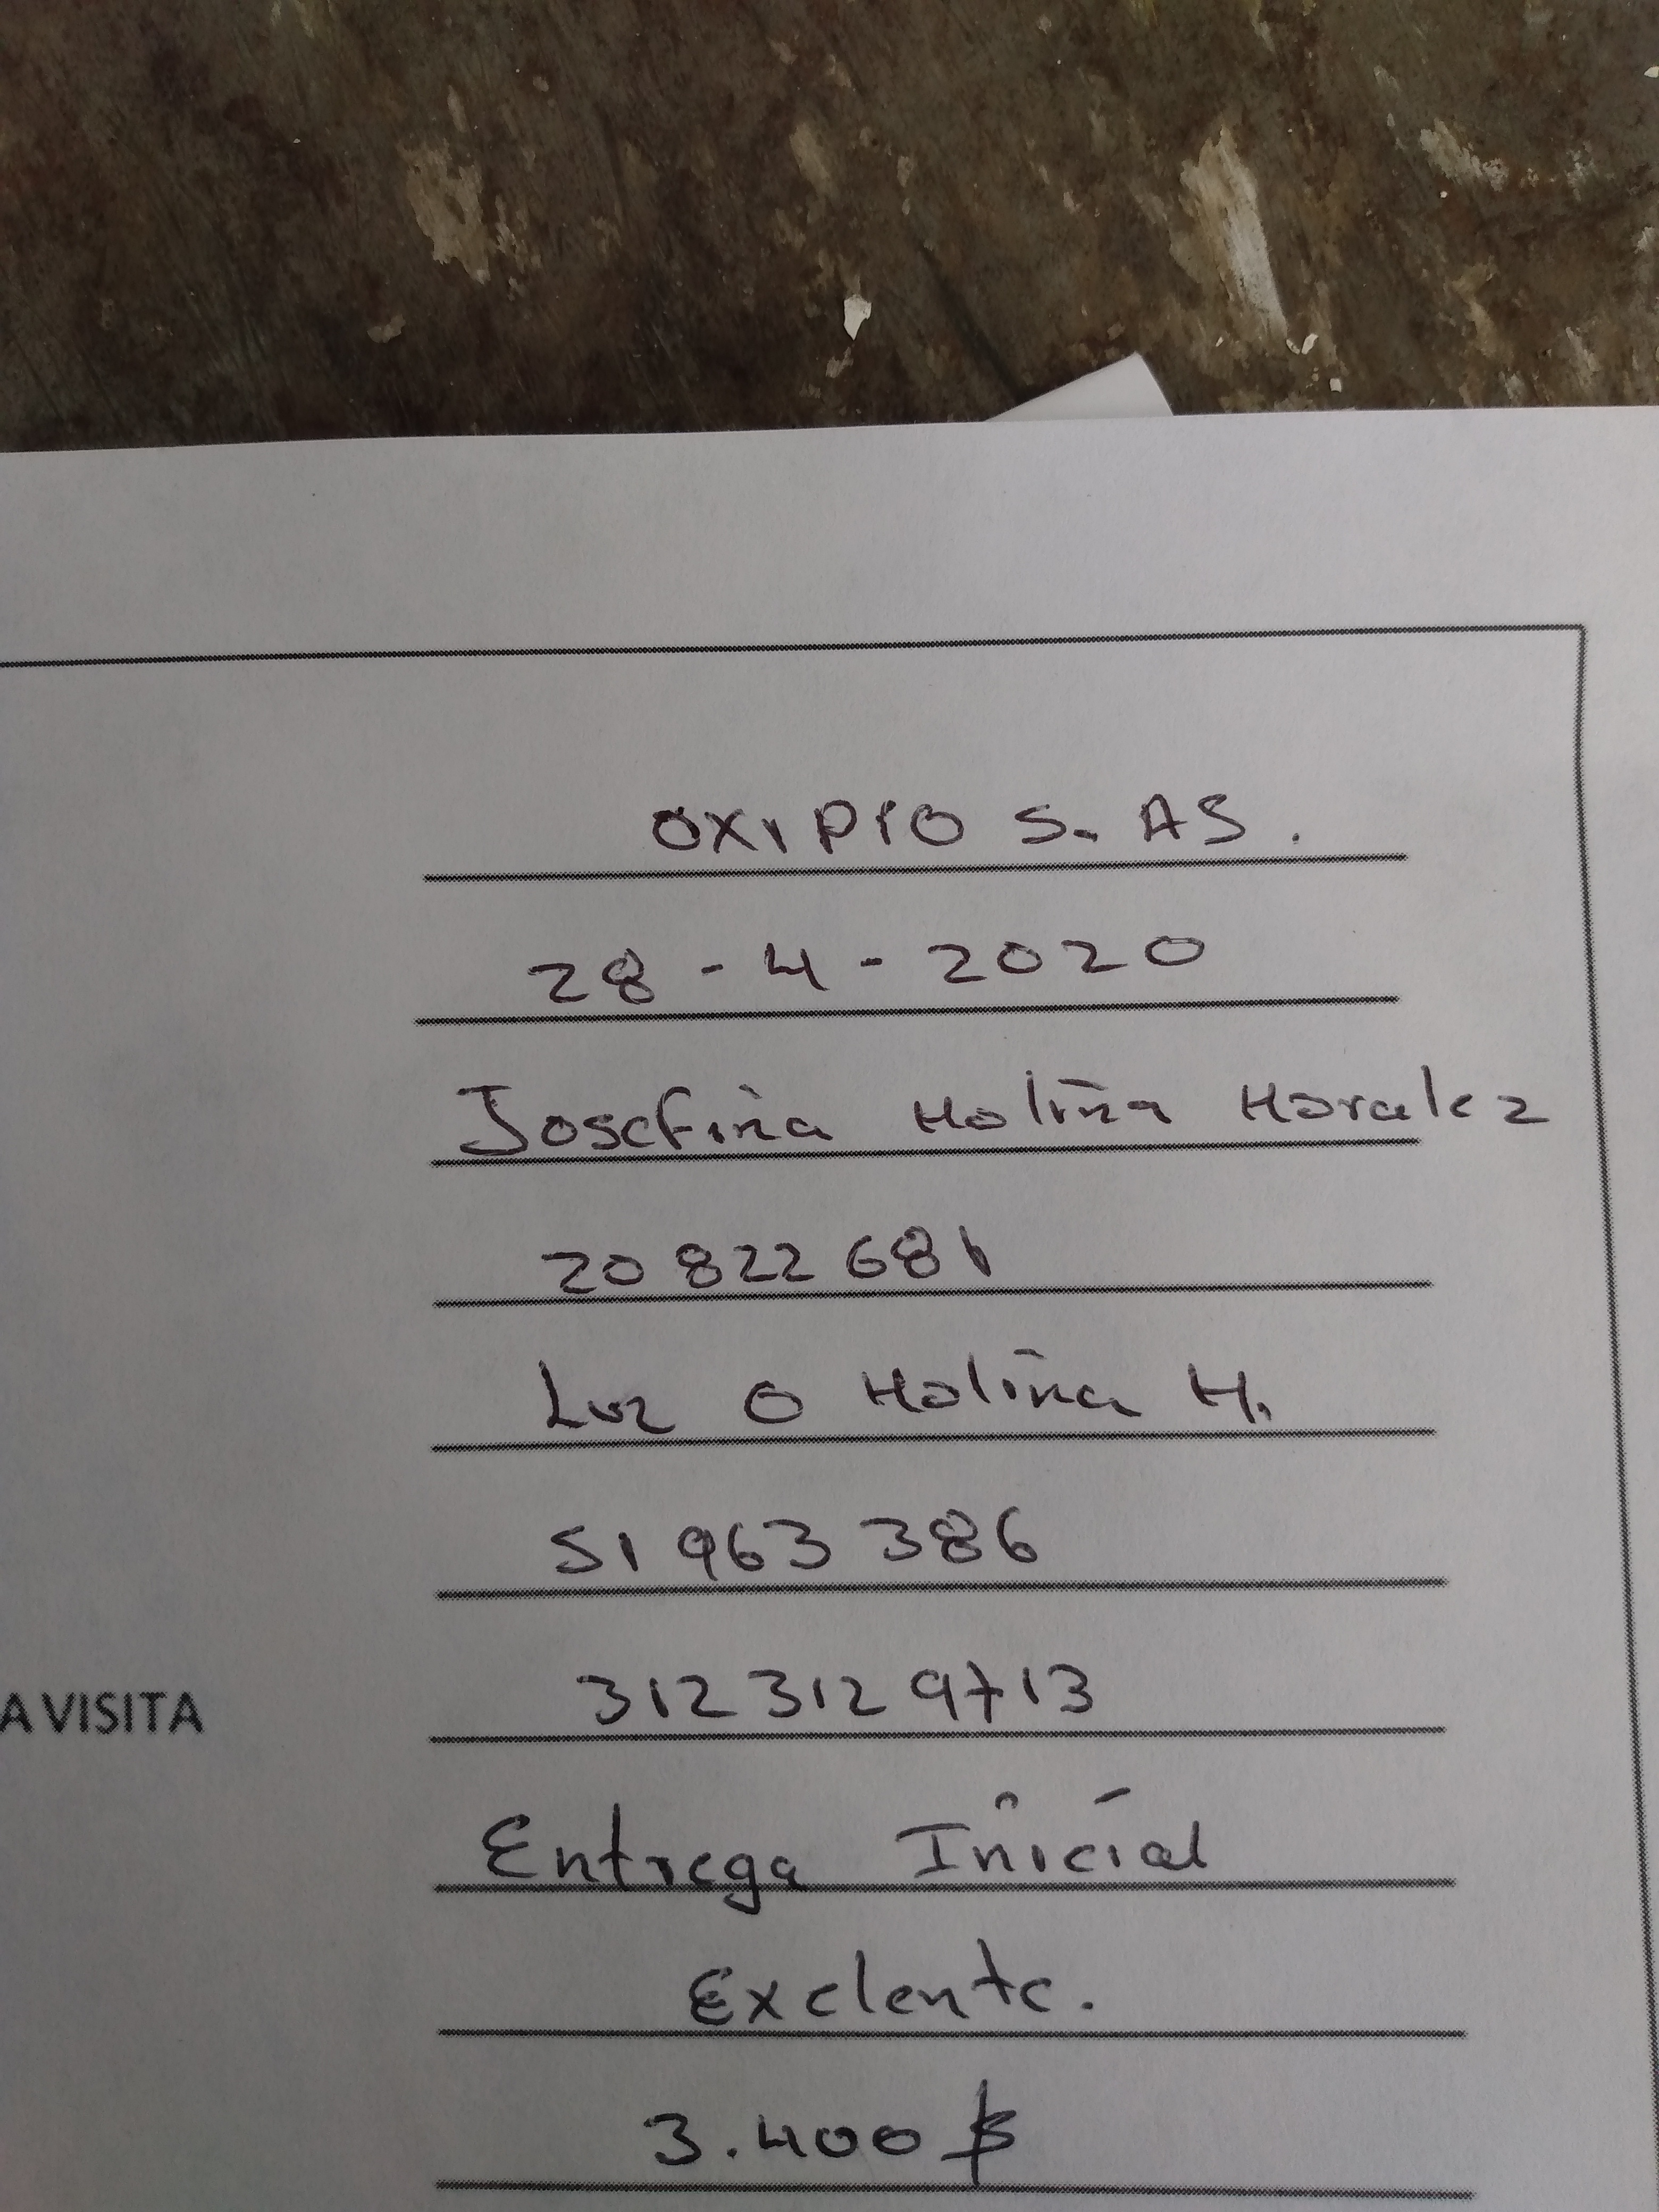 OXIPRO S. AS.
28 - 4 - 2020
Josefina Molina Moralez
20 822 681
Luz O Molina M.
51 963 386
A VISITA 312 312 9713
Entrega Inicial
Exelente.
3.400 $